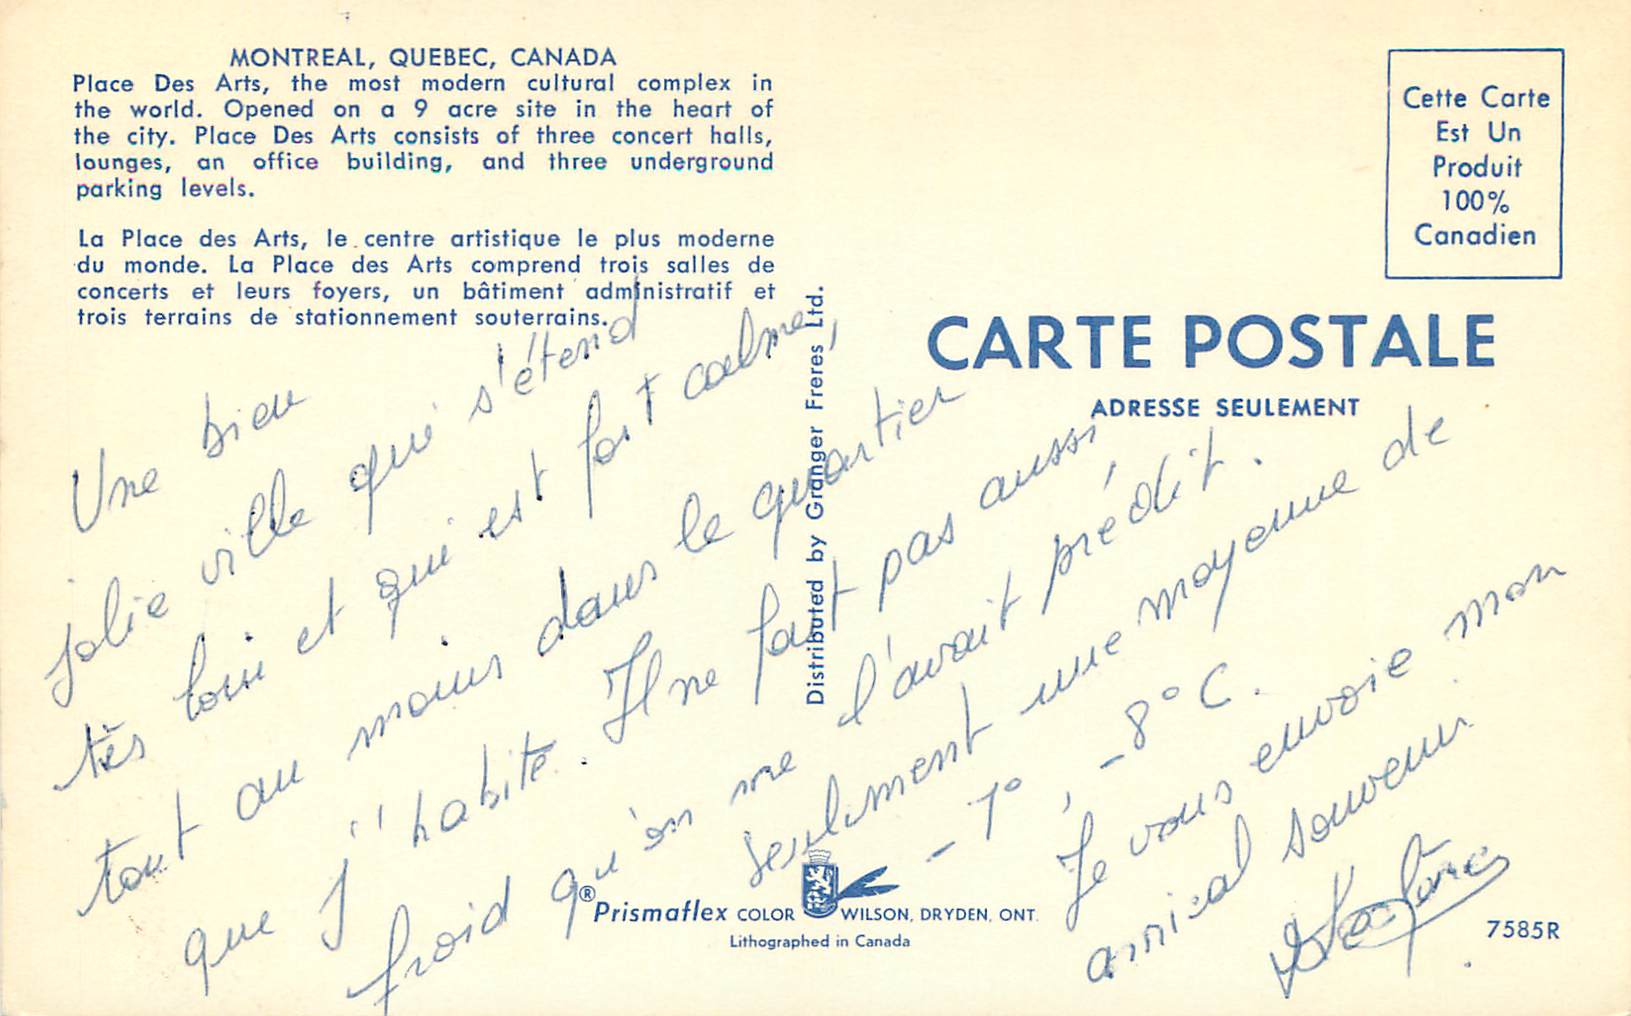 MONTREAL, QUEBEC, CANADA
Place Des Arts, the most modern cultural complex in
the world. Opened on a 9 acre site in the heart of
the city. Place Des Arts consists of three concert halls,
lounges, an office building, and three underground
parking levels.
La Place des Arts, le centre artistique le plus moderne
du monde. La Place des Arts comprend trois salles de
concerts et leurs foyers, un bâtiment administratif et
trois terrains de stationnement souterrains.
Cette Carte
Est Un
Produit
100%
Canadien
CARTE POSTALE
ADRESSE SEULEMENT
Distributed by Granger Freres Ltd.
Une bien
jolie ville qui s'étend
très loin et qui est fort calme,
tout au moins dans le quartier
que j'habite. Il ne fait pas aussi
froid qu'on me l'avait prédit.
seulement une moyenne de
-7°, -8°C.
Je vous envoie mon
amical souvenir.
® Prismaflex COLOR WILSON, DRYDEN, ONT.
Lithographed in Canada
7585R